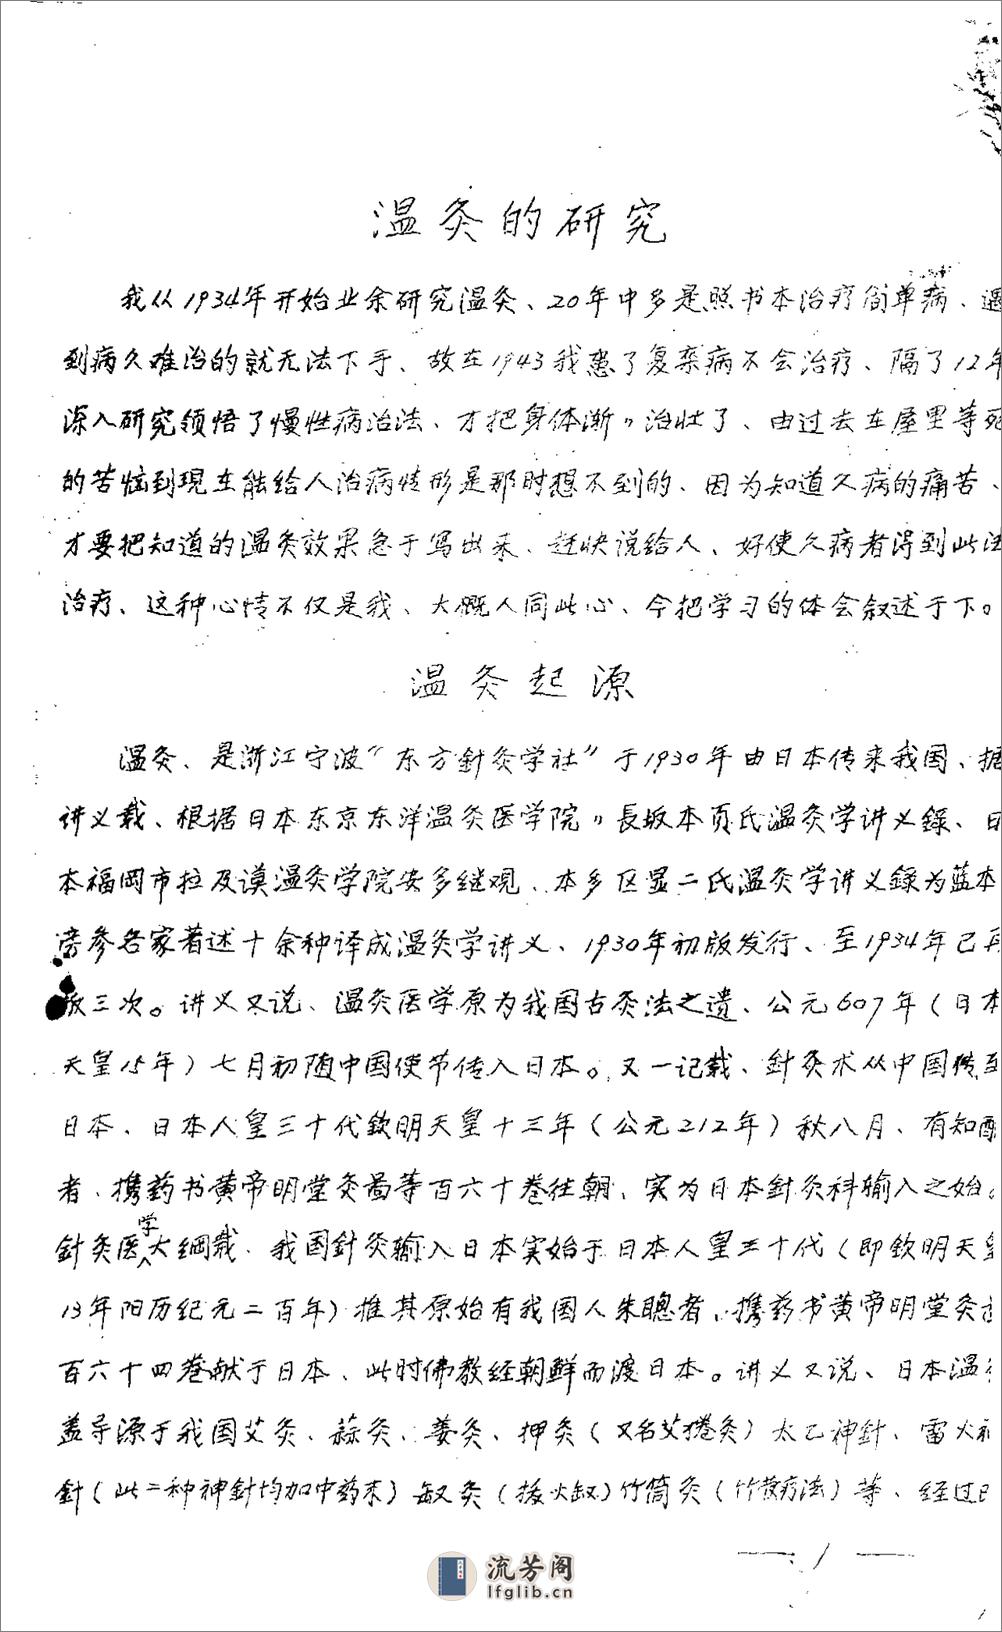 温灸的研究
我从1934年开始业余研究温灸、20年中多是照书本治疗简单病、遇
到病久难治的就无法下手、故在1943我患了复杂病不会治疗、隔了12年
深入研究领悟了慢性病治法、才把身体渐〃治壮了、由过去在屋里等死
的苦恼到现在能给人治病情形是那时想不到的、因为知道久病的痛苦、
才要把知道的温灸效果急于写出来、赶快说给人、好使久病者得到此法
治疗、这种心情不仅是我、大概人同此心、今把学习的体会叙述于下。
温灸起源
温灸、是浙江宁波“东方針灸学社”于1930年由日本传来我国、据
讲义载、根据日本东京东洋温灸医学院〃長坂本貢氏温灸学讲义錄、日
本福岡市拉及谟温灸学院安多继观、本乡区显二氏温灸学讲义錄为蓝本
旁参各家著述十余种译成温灸学讲义、1930年初版发行、至1934年已再
版三次。讲义又说、温灸医学原为我国古灸法之遗、公元607年（日本
天皇15年）七月初随中国使节传入日本。又一记载、針灸术从中国传至
日本、日本人皇三十代钦明天皇十三年（公元212年）秋八月、有知
者、携药书黄帝明堂灸啚等百六十卷往朝、实为日本針灸科输入之始。
針灸医学大綱载、我国針灸输入日本实始于日本人皇三十代（即钦明天皇
13年阳历纪元二百年）推其原始有我国人朱聰者、携药书黄帝明堂灸
百六十四卷献于日本、此时佛教经朝鮮而渡日本。讲义又说、日本温灸
盖导源于我国艾灸、蒜灸、姜灸、押灸（又名艾捲灸）太乙神針、雷火神
針（此二种神針均加中药末）缸灸（拔火缸）竹筒灸（竹管疗法）等、经过日
— 1 —
流芳阁
lfglib.cn